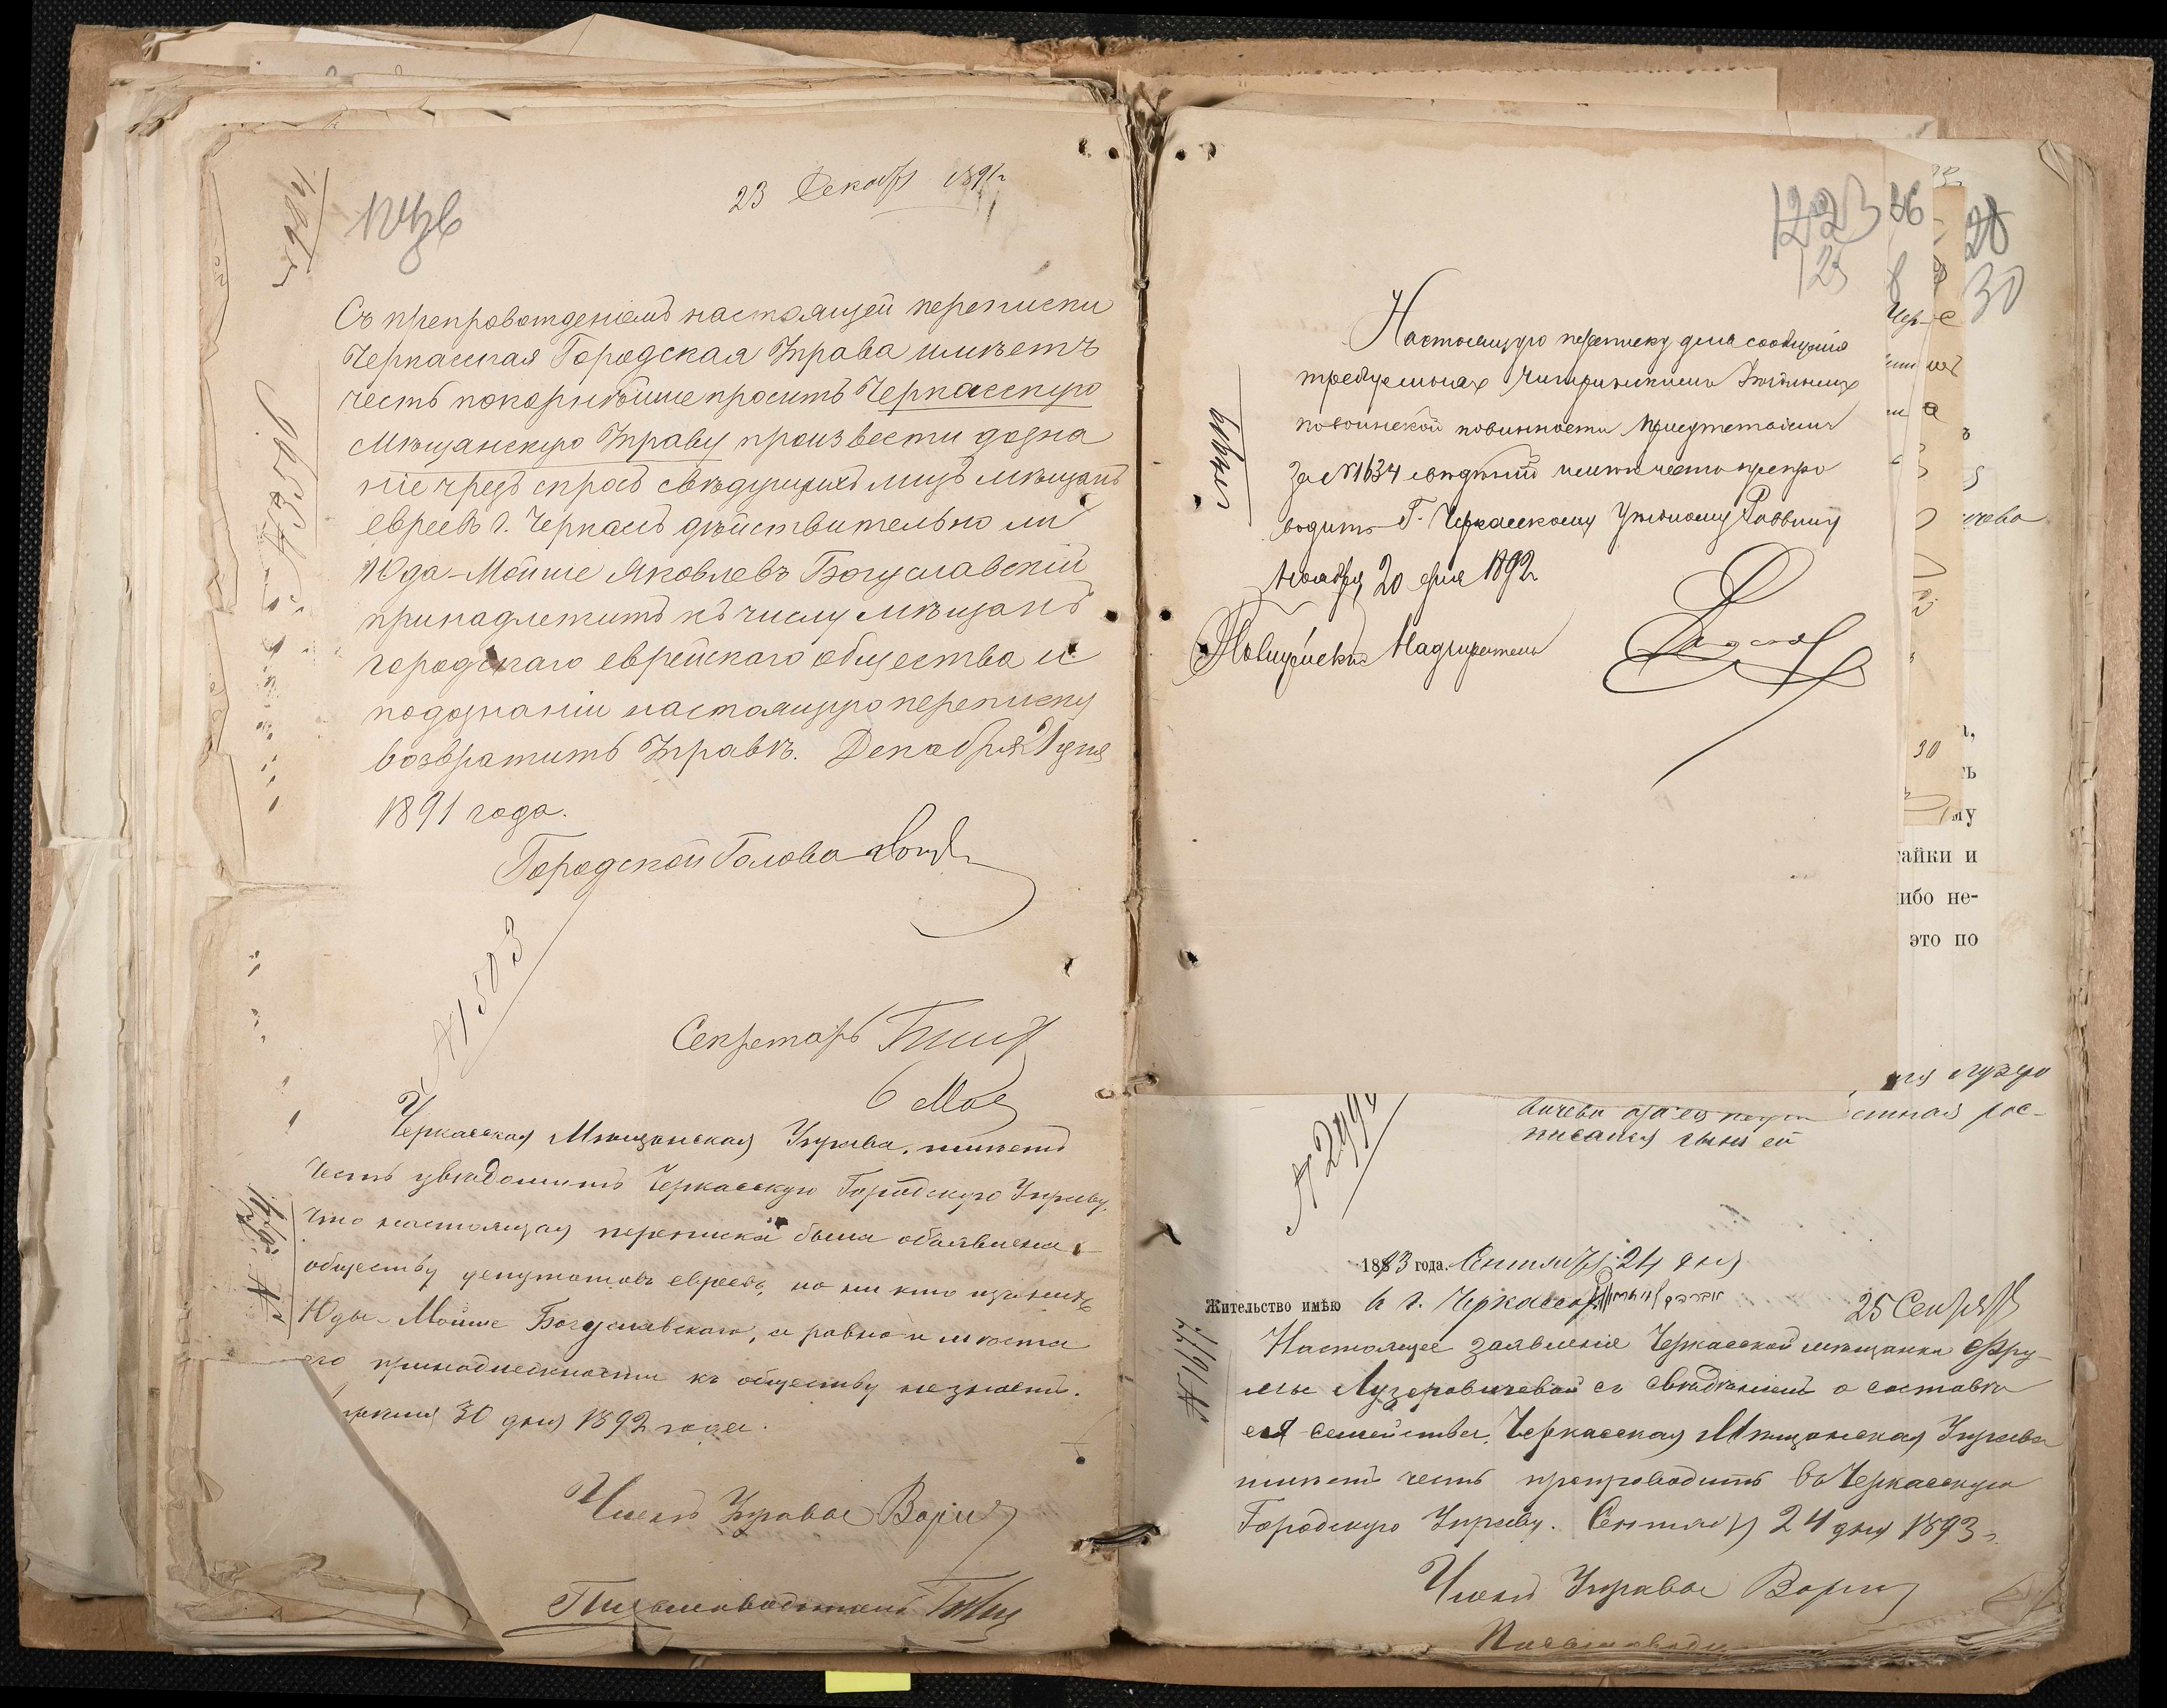 23 Декабр 1891 г
№ 3598
Съ препровожденіемъ настоящей переписки
Черкасская Городская Управа имѣетъ
честь покорнѣйше просить Черкасскую
Мѣщанскую Управу произвести дозна
ніе чрезъ спросъ свѣдующихъ лицъ мѣщанъ
евреевъ г. Черкасъ дѣйствительно ли
Юда-Мойше Яковлевъ Богуславскій
принадлежитъ къ числу мѣщанъ
городскаго еврейскаго общества и
по дознаніи настоящую переписку
возвратить Управѣ. Декабря 21 дня
1891 года.
Городской Голова
№ 1503
Секретарь
6 Мая
Черкасская Мѣщанская Управа, имѣетъ
честь увѣдомить Черкасскую Городскую Управу,
что настоящая переписка была объявлена
обществу депутатовъ евреевъ, но ни кто изъ нихъ
Юды-Мойше Богуславскаго, а равно и мѣста
его принадлежности къ обществу не знаетъ.
30 дня 1892 года.
Членъ Управы
Письмоводитель
1223
125
36
28
30
Настоящую переписку для сообщенія
требуемыхъ Чигиринскимъ Уѣзднымъ
по воинской повинности Присутствіемъ
за № 1634 свѣдѣній имѣю честь препро
водить Г. Черкасскому Уѣздному Раввину
Ноября 20 дня 1892 г
Полицейскій Надзиратель
30
айки и
ибо не-
это по
писался
1893 года. Сентября 24 дня
Жительство имѣю в г. Черкассах
25 Сентяб
№ 1677
Настоящее заявленіе Черкасской мѣщанки Фру-
мы Лузеровичевой съ свѣдѣніемъ о составѣ
ея семейства, Черкасская Мѣщанская Управа
имѣетъ честь препроводить въ Черкасскую
Городскую Управу. Сентября 24 дня 1893 г.
Членъ Управы
Письмоводи